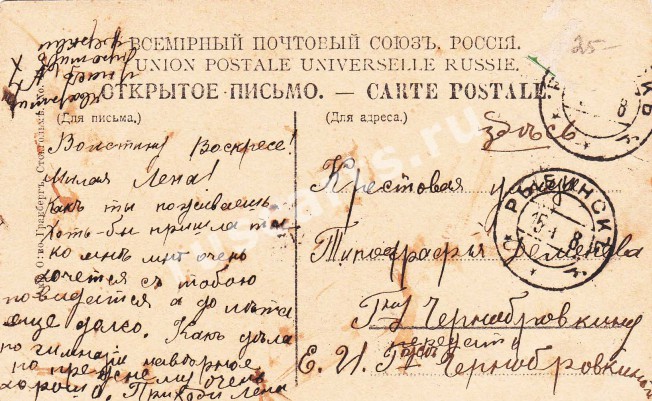 ВСЕМІРНЫЙ ПОЧТОВЫЙ СОЮЗЪ. РОССІЯ.
UNION POSTALE UNIVERSELLE RUSSIE.
ОТКРЫТОЕ ПИСЬМО. — CARTE POSTALE.
(Для письма.)
(Для адреса.)
25-
Воистину Воскресе!
Милая Лена!
Какъ ты поживаешь
Хоть-бы пришла ты
ко мнѣ мнѣ очень
хочется съ тобою
повидется а до лѣта
еще далеко. Какъ дѣла
по гимназіи навѣрное
по прежнему очень
хорошо. Приходи Лена
здѣсь
Крестовая улица
Типографія
Чернобровкину
передать
Е. И. Чернобровкиной
РЫБИНСКЪ
15 4 8
ruscards.ru